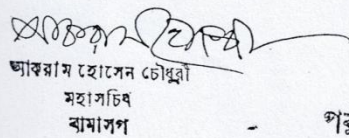 আকরাম হোসেন চৌধুরী
মহাসচিব
বামাসপ